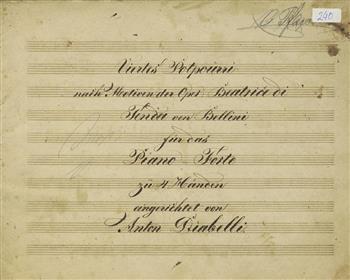 240
Viertes Potpouri
nach Motiven der Oper Beatrice di
Tenda von Bellini
für das
Piano-Forte
zu 4 Händen
eingerichtet von
Anton Diabelli.